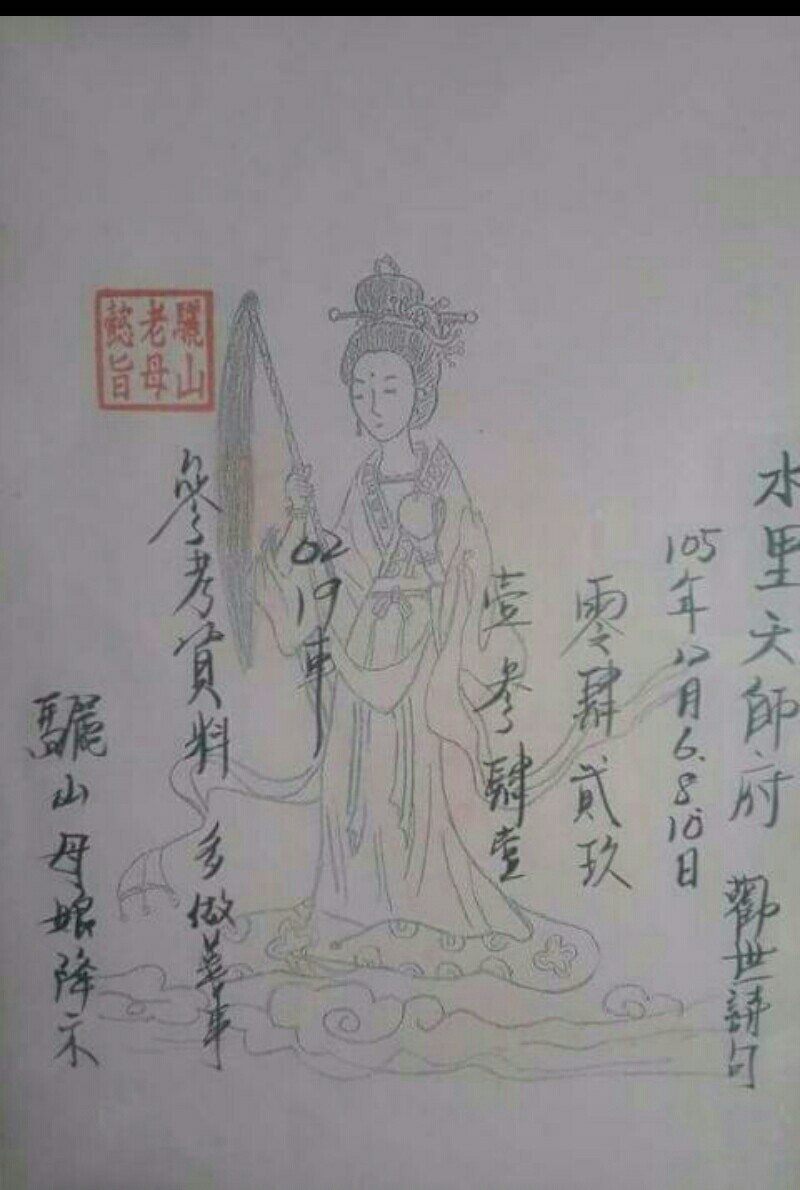 水里天師府
觀世請句
105年12月6.8.10日
零肆貳玖
壹參肆壹
02
19車
參考資料
多做善事
驪山老母懿旨
驪山母娘降示